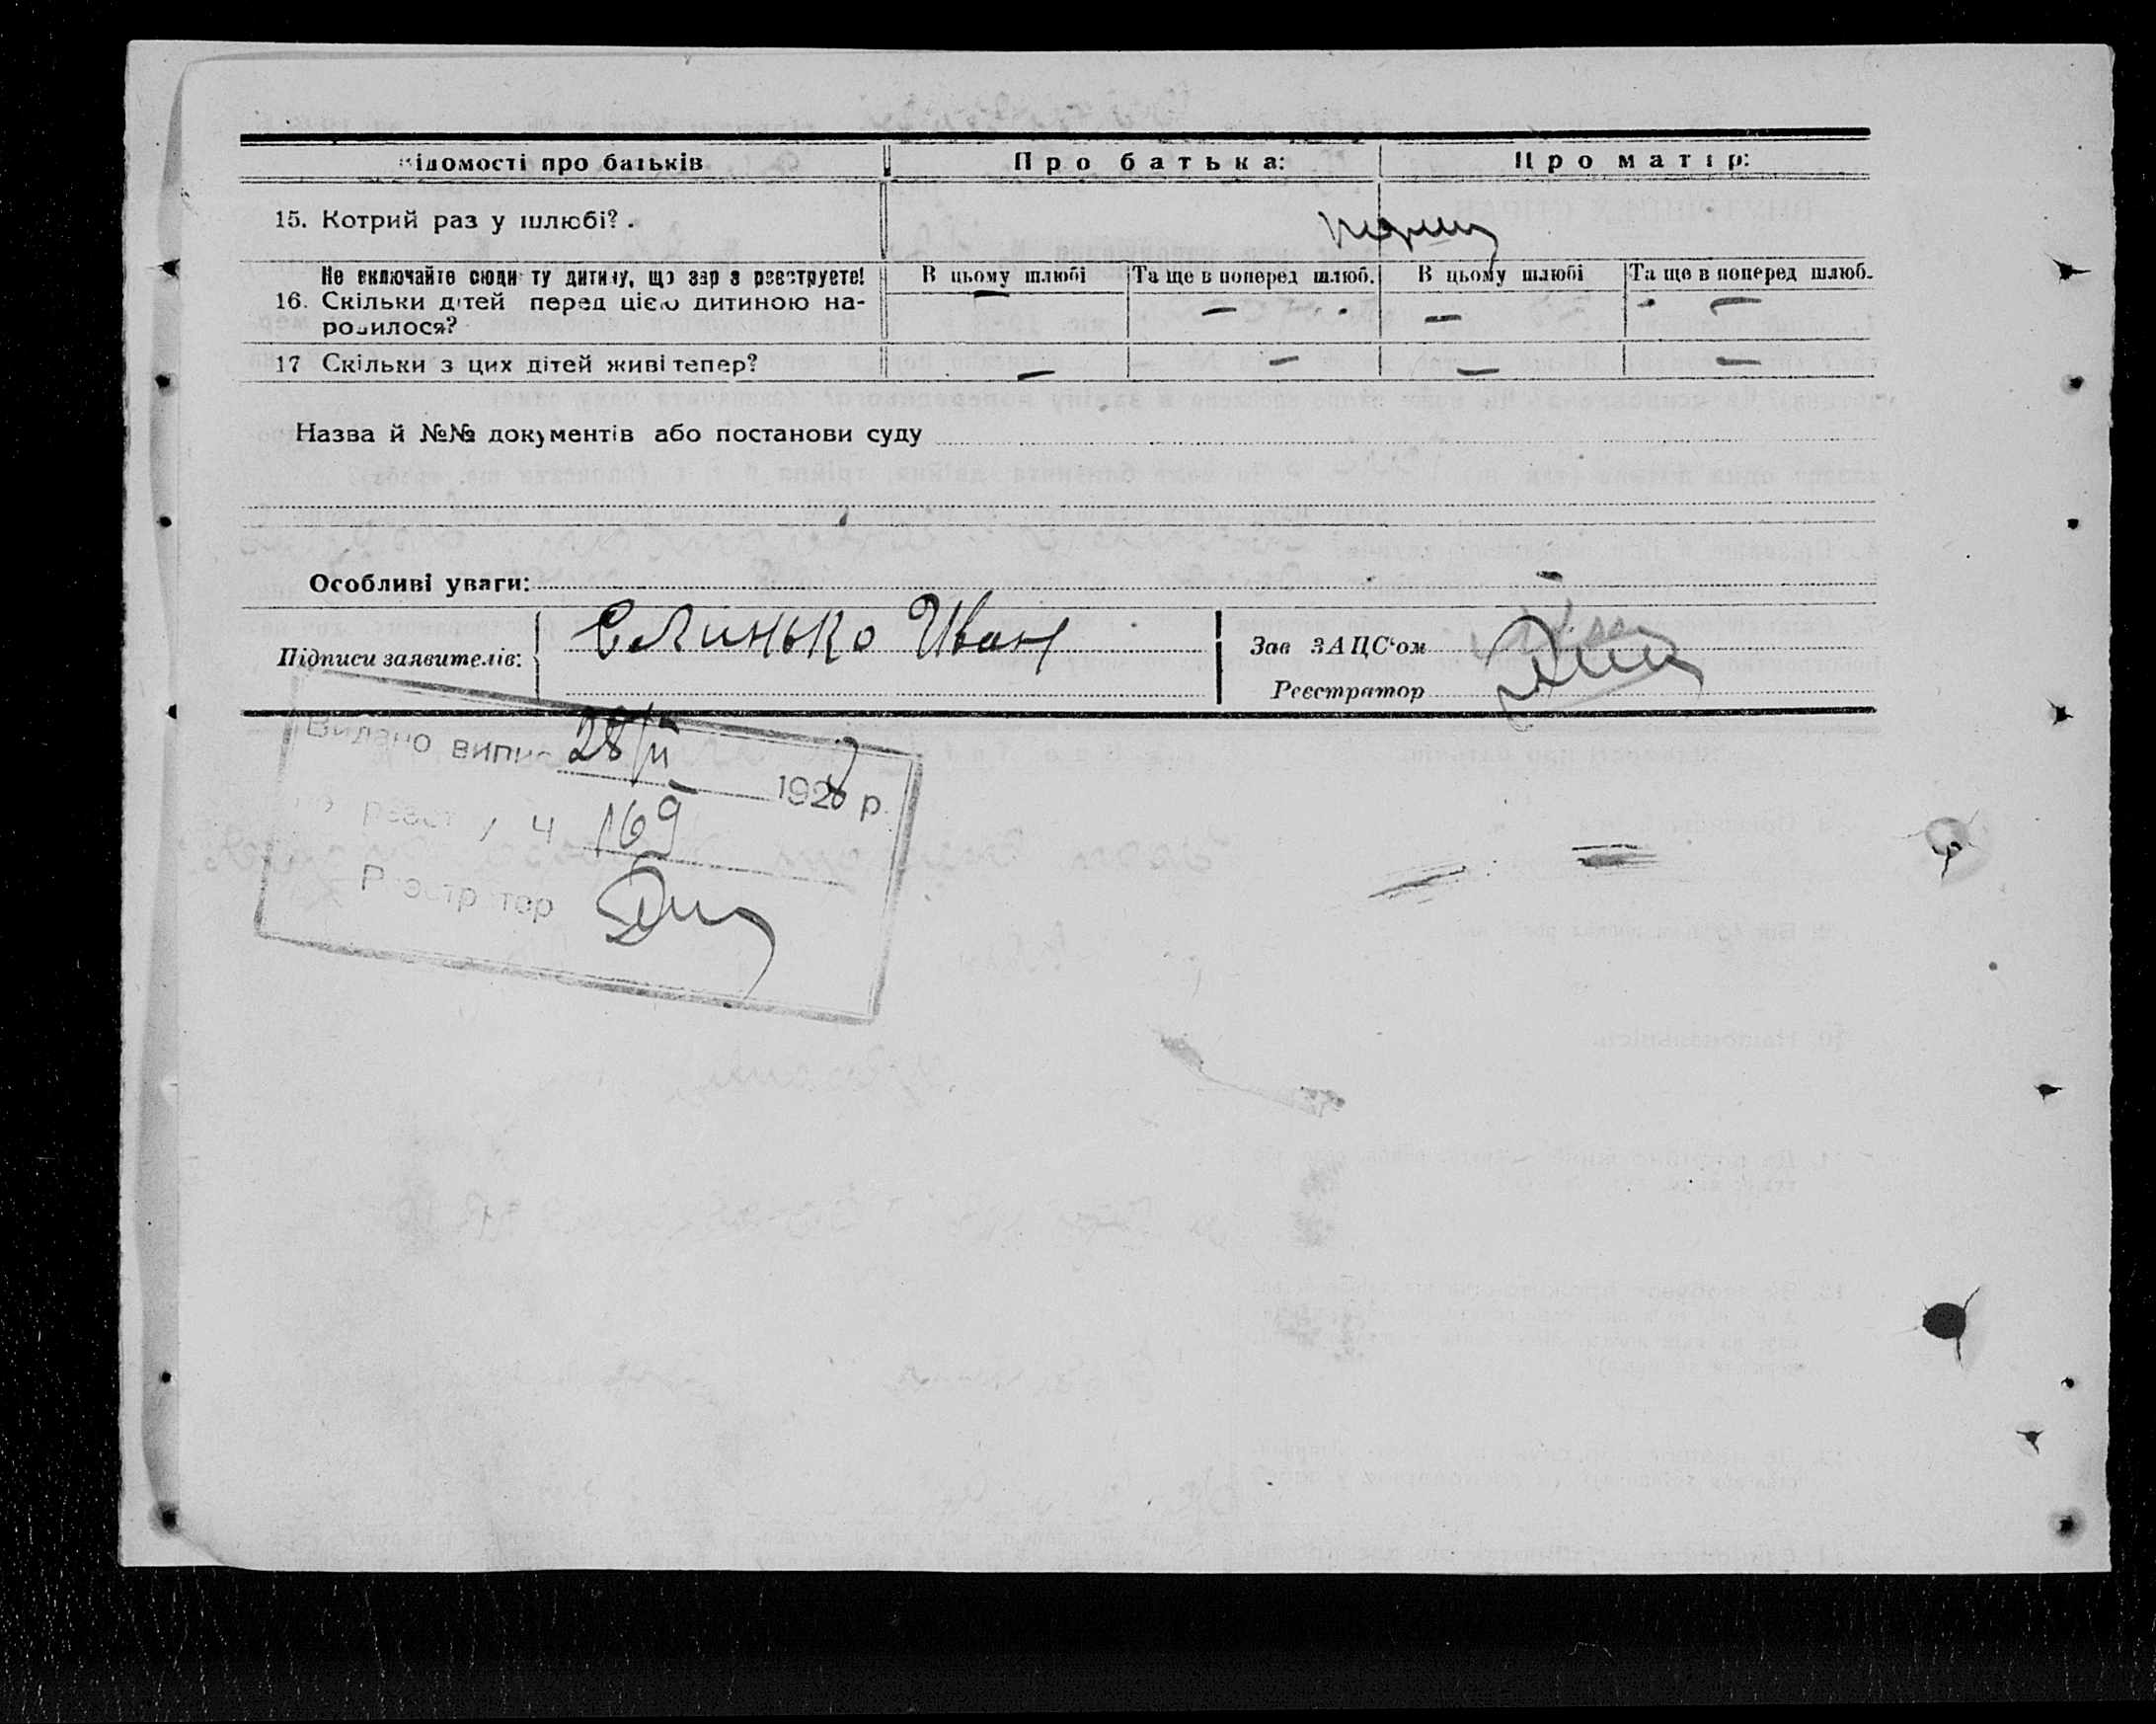 Відомості про батьків Про батька: Про матір:
15. Котрий раз у шлюбі?.
Не включайте сюди ту дитину, що зараз реєструєте! В цьому шлюбі Та ще в поперед шлюб. В цьому шлюбі Та ще в поперед шлюб.
16. Скільки дітей перед цією дитиною на-
родилося? — — — —
17 Скільки з цих дітей живі тепер? — — — —
Назва й №№ документів або постанови суду
Особливі уваги:
Підписи заявителів: Єлинько Иван
Зав ЗАЦС'ом
Реєстратор
Видано випис 28/II 192 р.
по реєстру Ч 169
Реєстратор